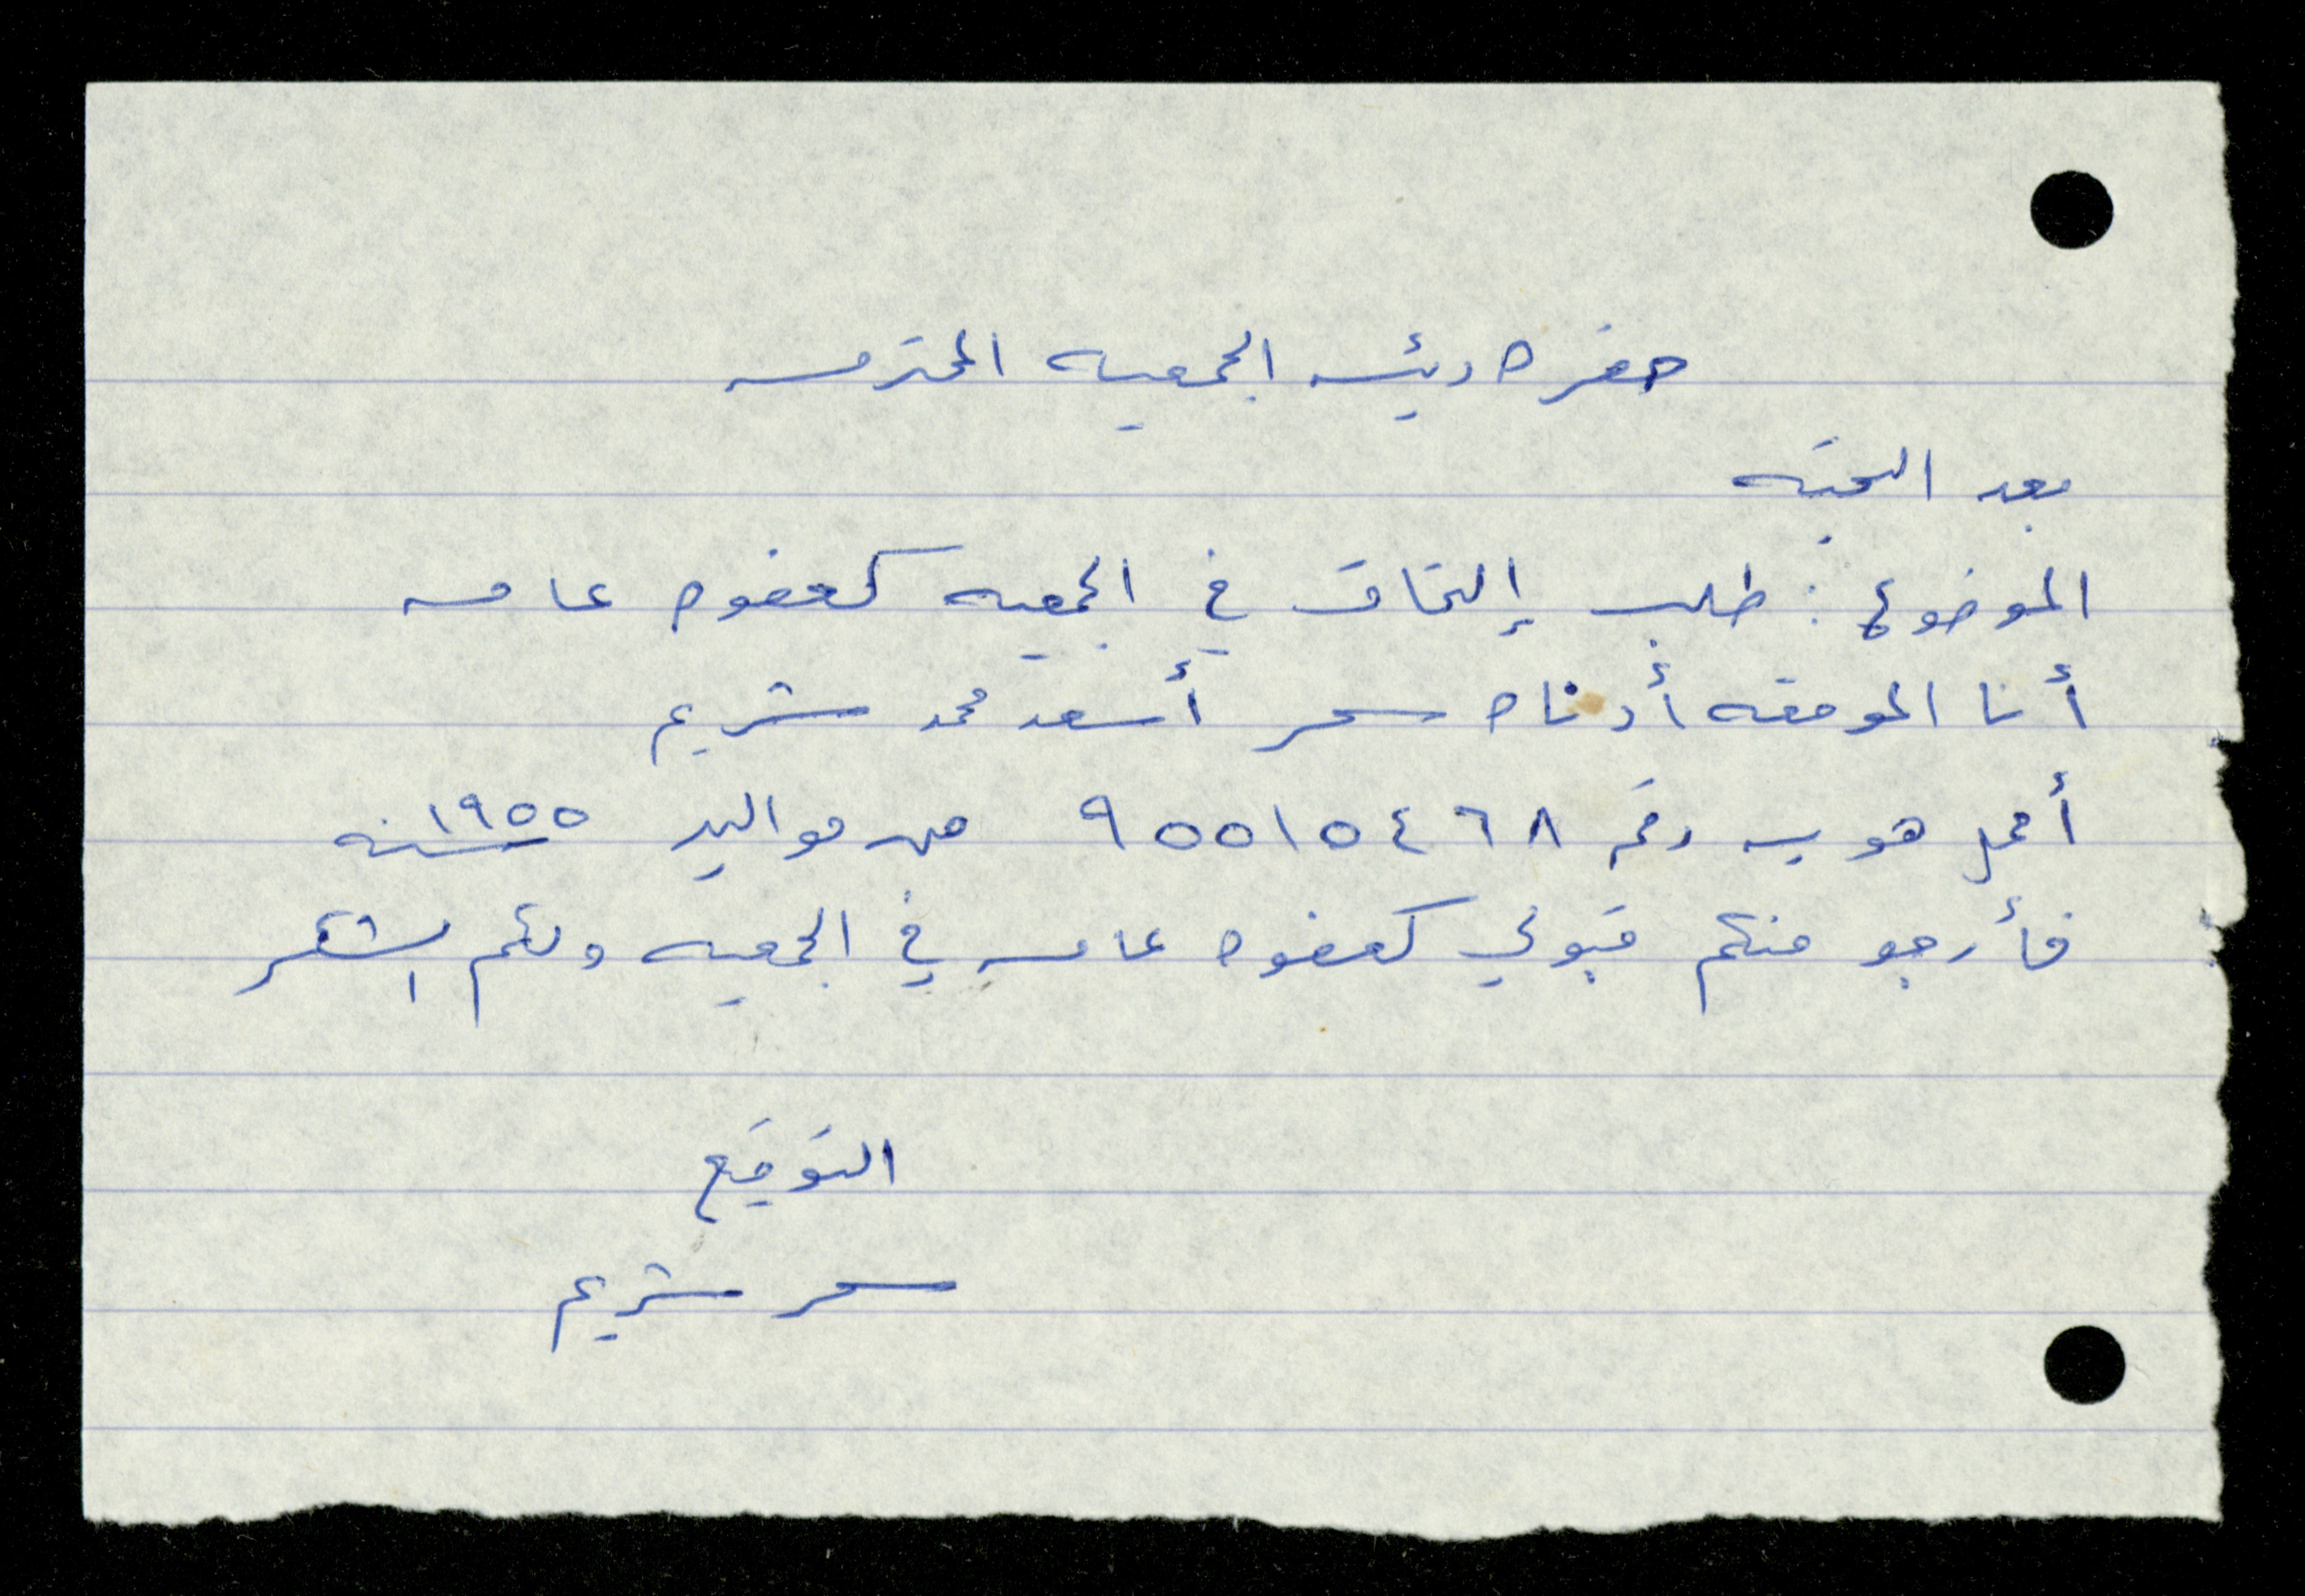 حضره رئيسه الجمعيه المحترمه
بعد التحيه
الموضوع : طلب إلتحاق في الجمعيه كعضوه عامه
أنا الموقعه أدناه سحر أسعد محمد شريم
أحمل هويه رقم ٩٥٥١٥٤٦٨ من مواليد ١٩٥٥ سنه
فأرجو منكم قبولي كعضوه عامه في الجمعيه ولكم الشكر
التوقيع
سحر شريم